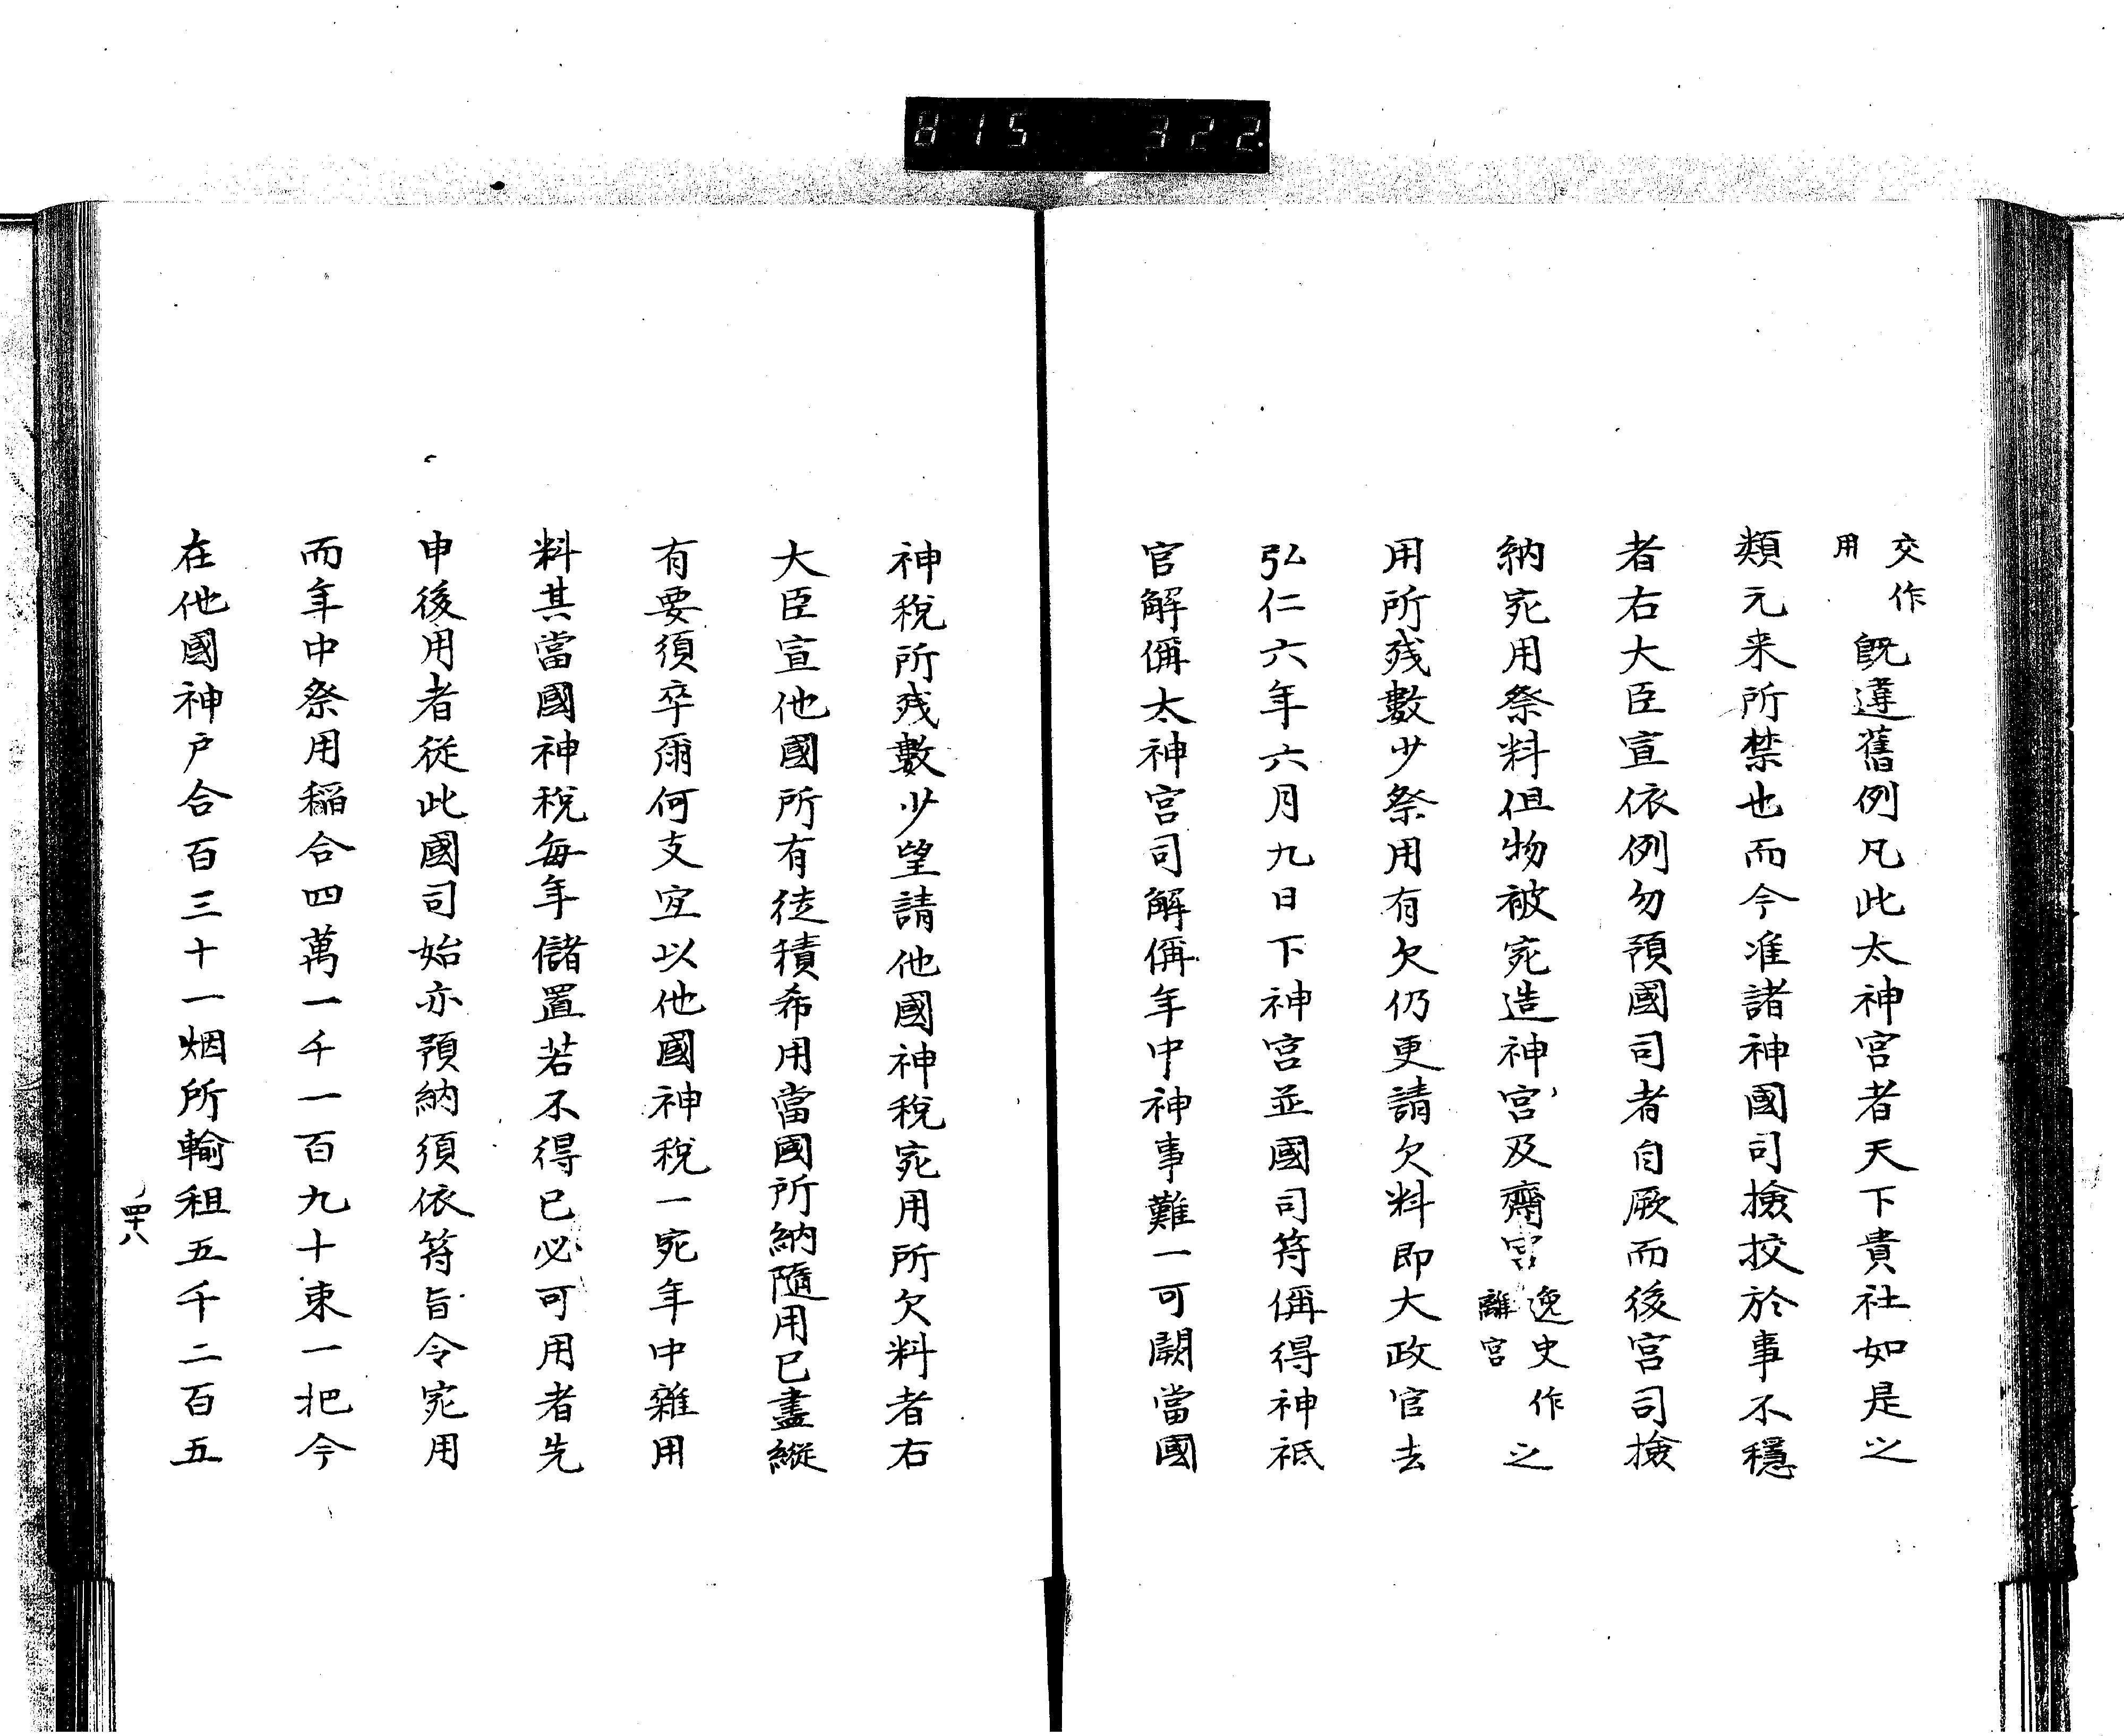 815 322
交作用既違舊例凡此太神宮者天下貴社如是之
類元来所禁也而今准諸神國司撿挍於事不穩
者右大臣宣依例勿預國司者自厥而後宮司撿
納宛用祭料但物被宛造神宮及齋宮逸史作離宮之
用所残數少祭用有欠仍更請欠料即大政官去
弘仁六年六月九日下神宮並國司符偁得神祇
官解偁太神宮司解偁年中神事難一可闕當國
神税所残數少望請他國神税宛用所欠料者右
大臣宣他國所有徒積希用當國所納隨用已盡縦
有要須卒爾何支宜以他國神税一宛年中雜用
料其當國神税毎年儲置若不得已必可用者先
申後用者従此國司始亦預納須依符旨令宛用
而年中祭用稲合四萬一千一百九十束一把今
在他國神戸合百三十一烟所輸租五千二百五
四十八